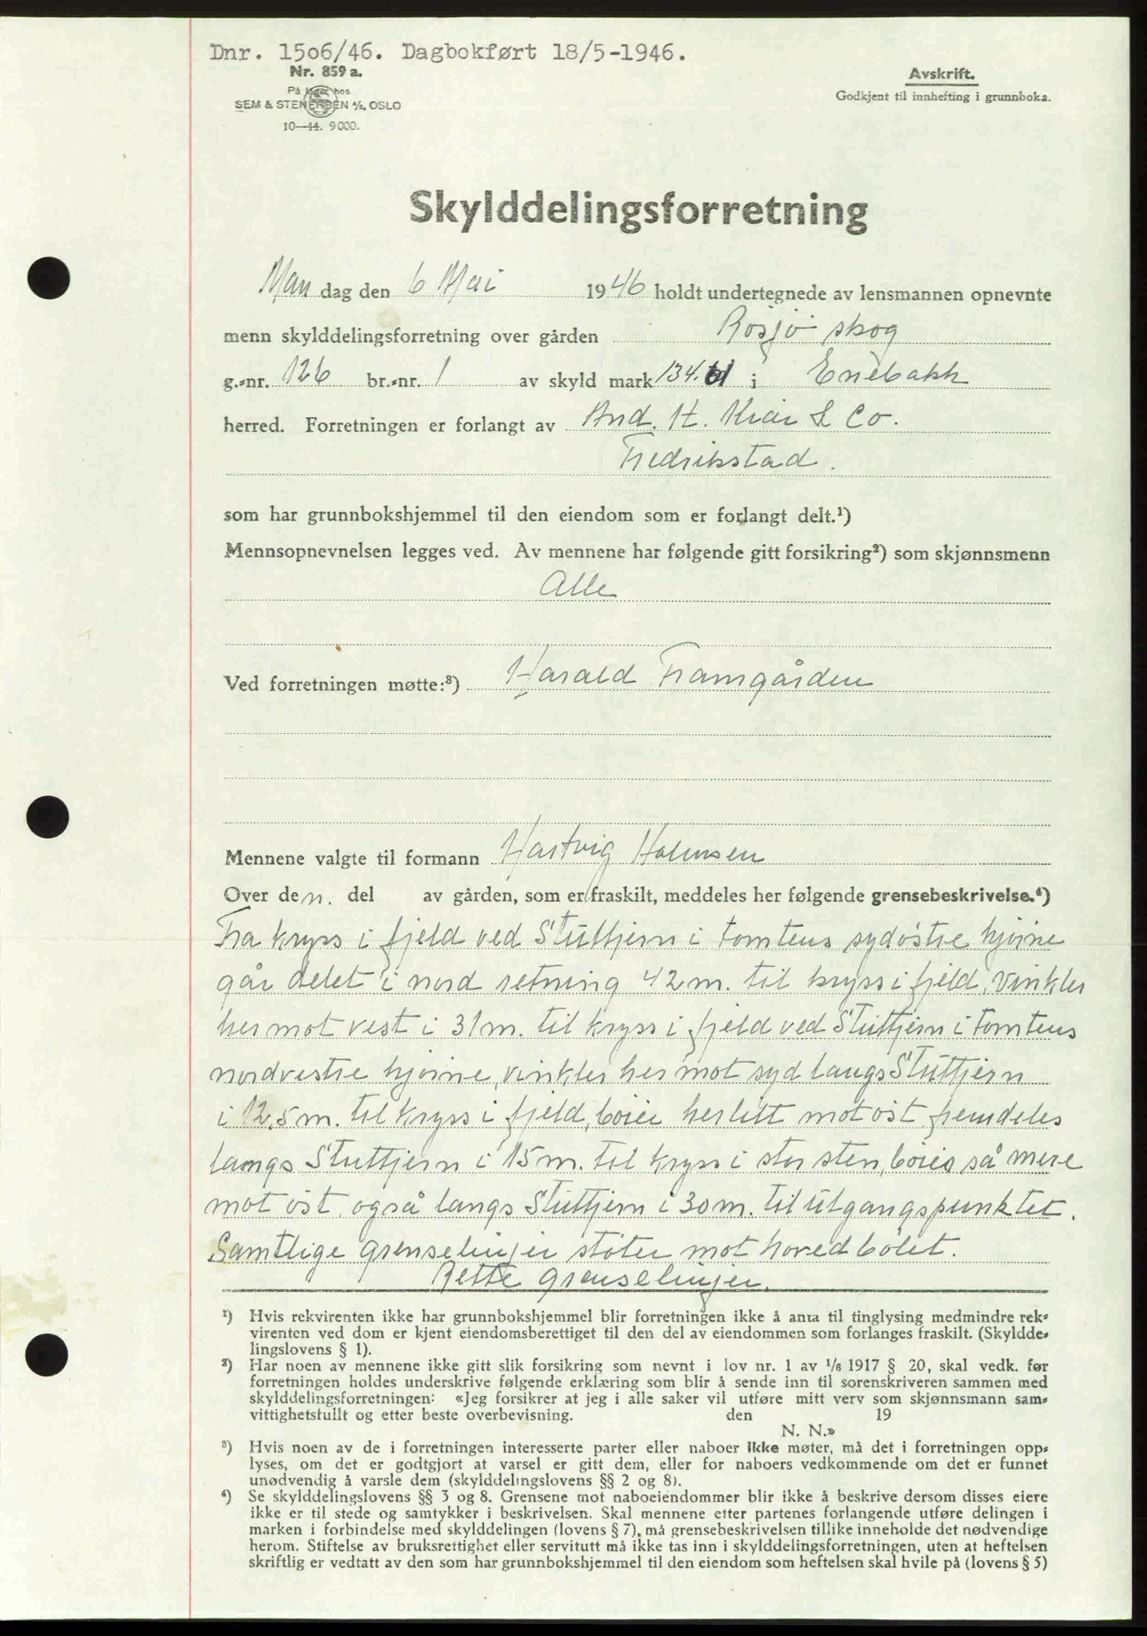 Dnr. 1506/46. Dagbokført 18/5-1946.
Nr. 859 a.
På lager hos
SEM & STENERSEN A/S, OSLO
10—44. 9000.
Avskrift.
Godkjent til innhefting i grunnboka.
Skylddelingsforretning
Man dag den 6 Mai 1946 holdt undertegnede av lensmannen opnevnte
menn skylddelingsforretning over gården Rosjø skog
g.-nr. 126 br.-nr. 1 av skyld mark 134. i Enebakk
herred. Forretningen er forlangt av And. H. Kiær & Co.
Fredrikstad.
som har grunnbokshjemmel til den eiendom som er forlangt delt.¹)
Mennsopnevnelsen legges ved. Av mennene har følgende gitt forsikring²) som skjønnsmenn
Alle
Ved forretningen møtte:³) Harald Framgården
Mennene valgte til formann Hartvig Holmsen
Over den. del av gården, som er fraskilt, meddeles her følgende grensebeskrivelse.⁴)
Fra kryss i fjeld ved Stuttjern i tomtens sydøstre hjørne
går delet i nord retning 42 m. til kryss i fjeld, vinkler
her mot vest i 31 m. til kryss i fjeld ved Stuttjern i tomtens
nordvestre hjørne, vinkler her mot syd langs Stuttjern
i 12,5 m. til kryss i fjeld, bøier her litt mot øst fremdeles
langs Stuttjern i 15 m. til kryss i stor sten, bøies så mere
mot øst også langs Stuttjern i 30 m. til utgangspunktet.
Samtlige grenselinjer støter mot hovedbølet.
Rette grenselinjer.
¹) Hvis rekvirenten ikke har grunnbokshjemmel blir forretningen ikke å anta til tinglysing medmindre rek-
virenten ved dom er kjent eiendomsberettiget til den del av eiendommen som forlanges fraskilt. (Skyldde-
lingslovens § 1).
²) Har noen av mennene ikke gitt slik forsikring som nevnt i lov nr. 1 av 1/6 1917 § 20, skal vedk. før
forretningen holdes underskrive følgende erklæring som blir å sende inn til sorenskriveren sammen med
skylddelingsforretningen: «Jeg forsikrer at jeg i alle saker vil utføre mitt verv som skjønnsmann sam-
vittighetsfullt og etter beste overbevisning. den 19
N. N.»
³) Hvis noen av de i forretningen interesserte parter eller naboer ikke møter, må det i forretningen opp-
lyses, om det er godtgjort at varsel er gitt dem, eller for naboers vedkommende om det er funnet
unødvendig å varsle dem (skylddelingslovens §§ 2 og 8).
⁴) Se skylddelingslovens §§ 3 og 8. Grensene mot naboeiendommer blir ikke å beskrive dersom disses eiere
ikke er til stede og samtykker i beskrivelsen. Skal mennene etter partenes forlangende utføre delingen i
marken i forbindelse med skylddelingen (lovens § 7), må grensebeskrivelsen tillike inneholde det nødvendige
herom. Stiftelse av bruksrettighet eller servitutt må ikke tas inn i skylddelingsforretningen, uten at heftelsen
skriftlig er vedtatt av den som har grunnbokshjemmel til den eiendom som heftelsen skal hvile på (lovens § 5)